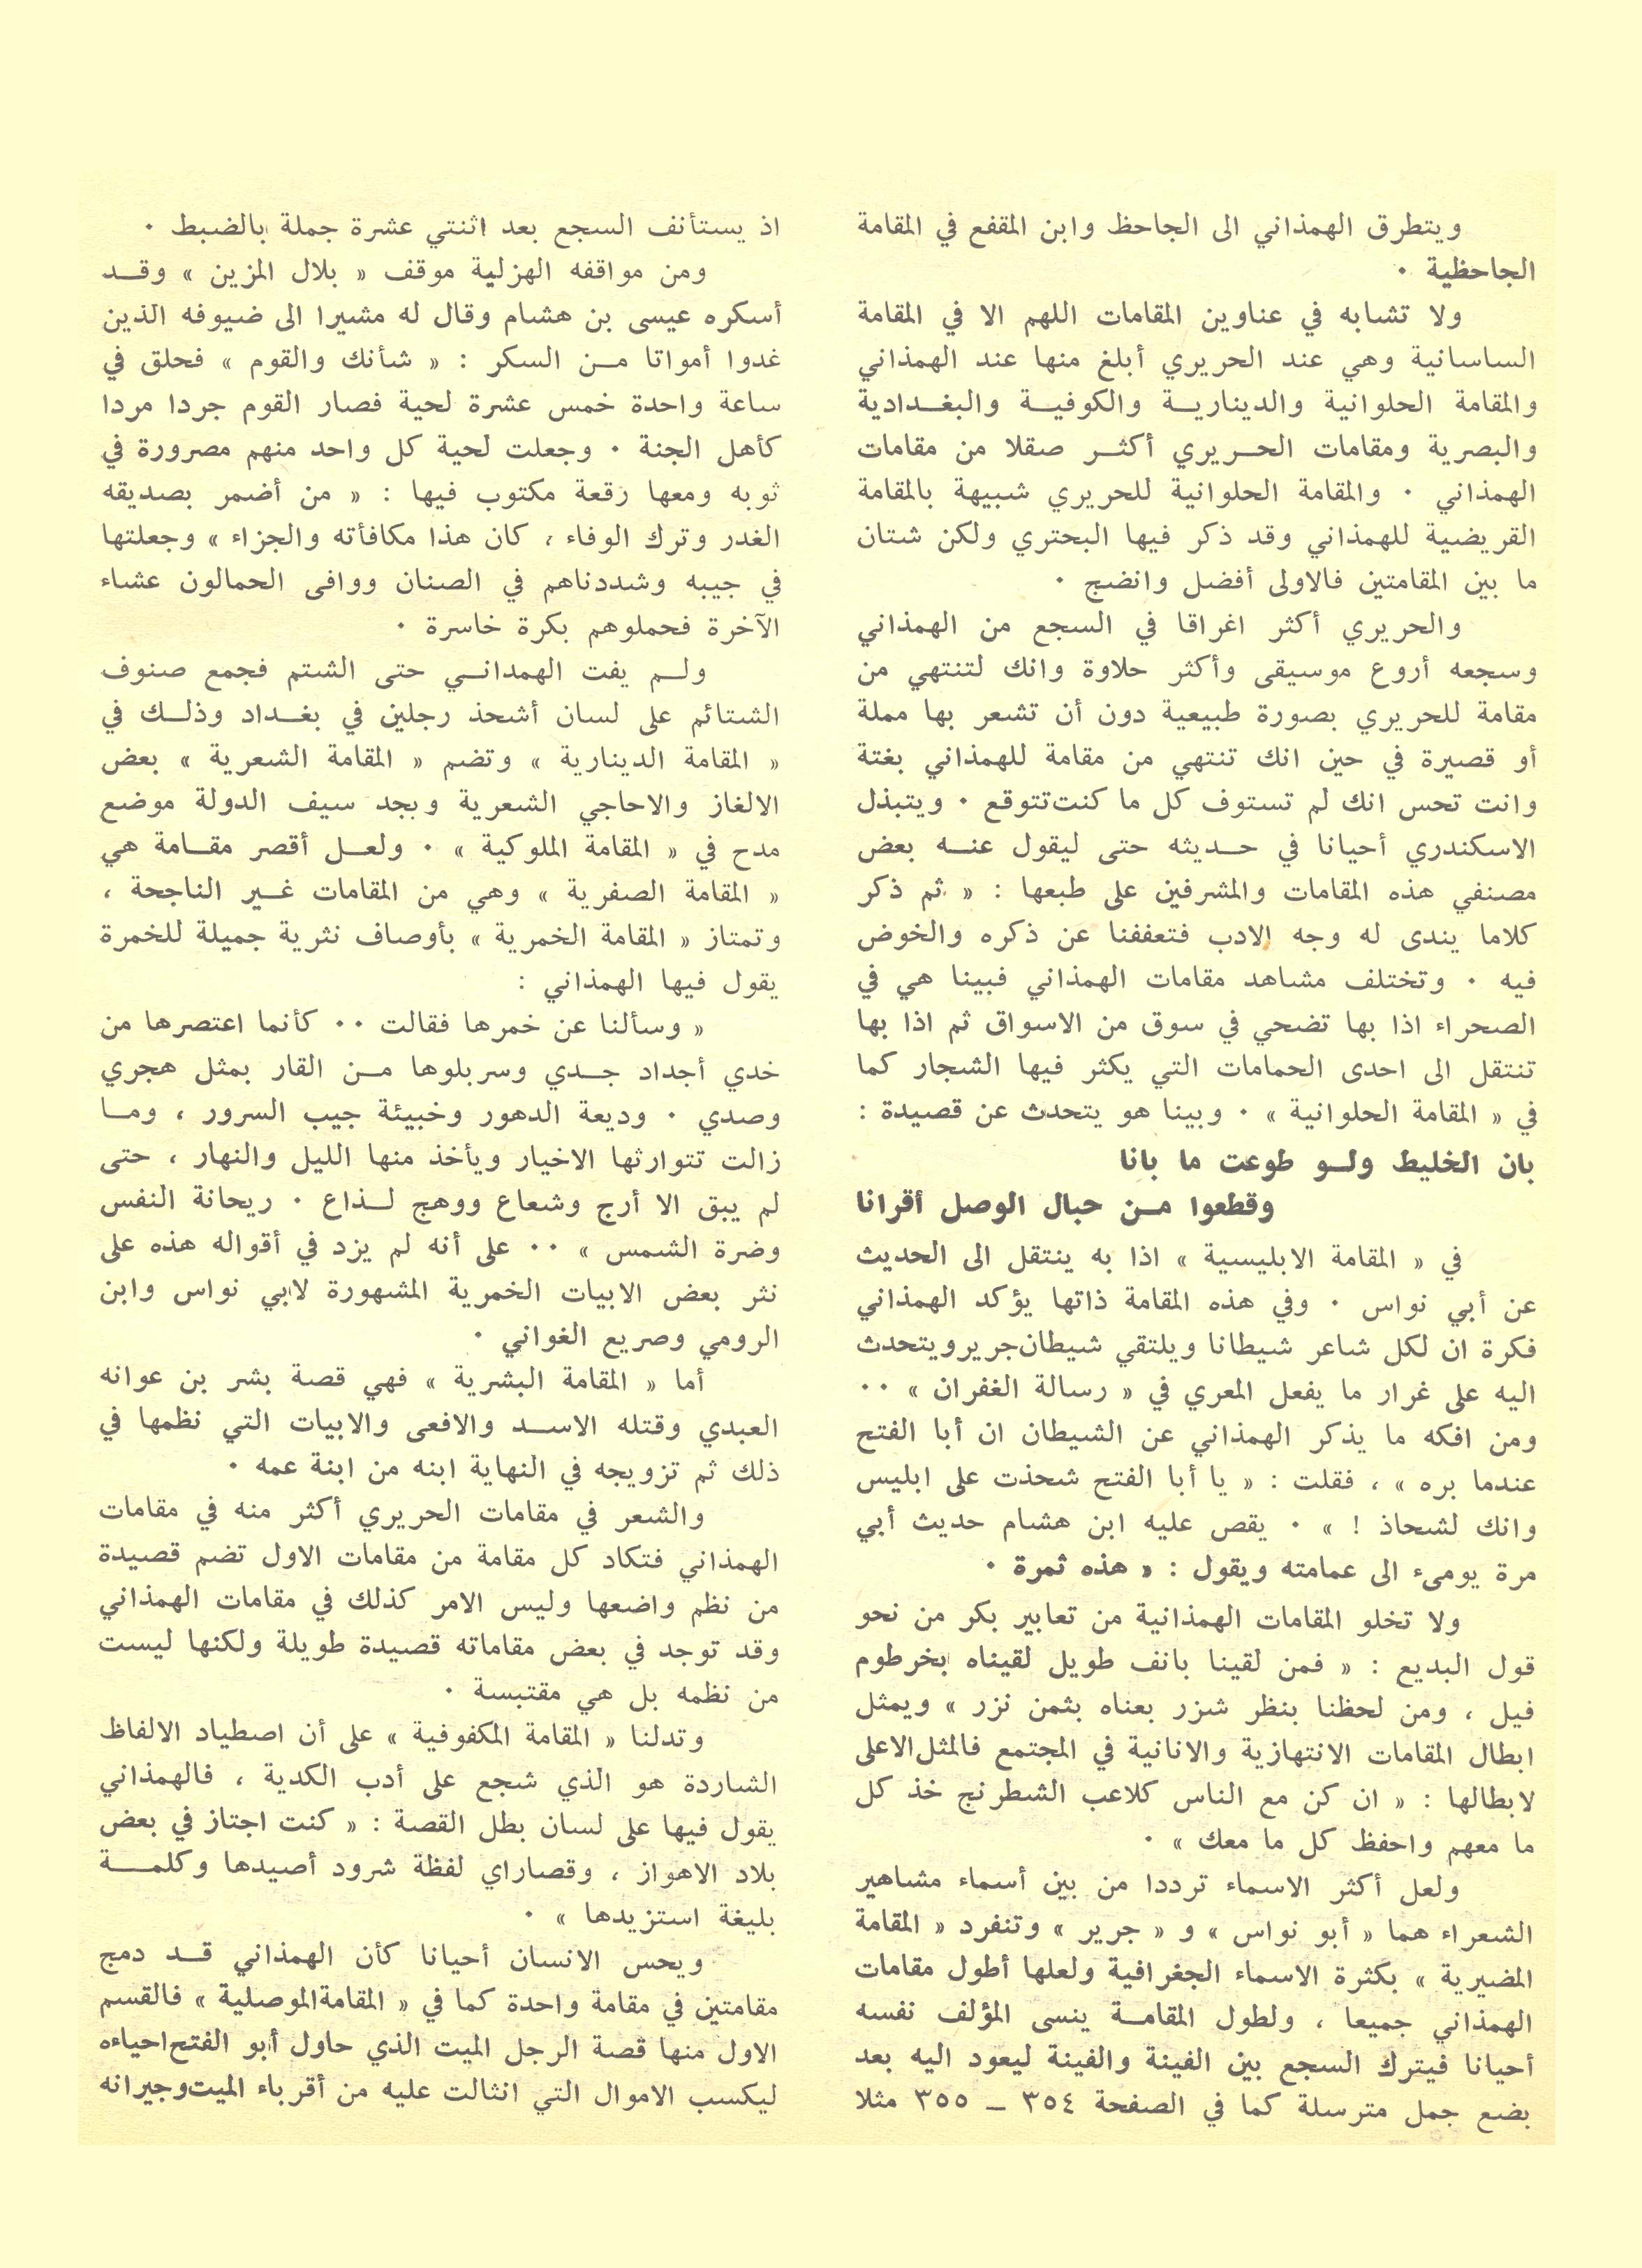 ويتطرق الهمذاني الى الجاحظ وابن المقفع في المقامة
الجاحظية ٠
ولا تشابه في عناوين المقامات اللهم الا في المقامة
الساسانية وهي عند الحريري أبلغ منها عند الهمذاني
والمقامة الحلوانية والدينارية والكوفية والبغدادية
والبصرية ومقامات الحريري أكثر صقلا من مقامات
الهمذاني ٠ والمقامة الحلوانية للحريري شبيهة بالمقامة
القريضية للهمذاني وقد ذكر فيها البحتري ولكن شتان
ما بين المقامتين فالاولى أفضل وانضج ٠
والحريري أكثر اغراقا في السجع من الهمذاني
وسجعه أروع موسيقى وأكثر حلاوة وانك لتنتهي من
مقامة للحريري بصورة طبيعية دون أن تشعر بها مملة
أو قصيرة في حين انك تنتهي من مقامة للهمذاني بغتة
وانت تحس انك لم تستوف كل ما كنت تتوقع ٠ ويتبذل
الاسكندري أحيانا في حديثه حتى ليقول عنه بعض
مصنفي هذه المقامات والمشرفين على طبعها : « ثم ذكر
كلاما يندى له وجه الادب فتعففنا عن ذكره والخوض
فيه ٠ وتختلف مشاهد مقامات الهمذاني فبينا هي في
الصحراء اذا بها تضحي في سوق من الاسواق ثم اذا بها
تنتقل الى احدى الحمامات التي يكثر فيها الشجار كما
في « المقامة الحلوانية » ٠ وبينا هو يتحدث عن قصيدة :
بان الخليط ولو طوعت ما بانا
وقطعوا من حبال الوصل أقرانا
في « المقامة الابليسية » اذا به ينتقل الى الحديث
عن أبي نواس ٠ وفي هذه المقامة ذاتها يؤكد الهمذاني
فكرة ان لكل شاعر شيطانا ويلتقي شيطان جرير ويتحدث
اليه على غرار ما يفعل المعري في « رسالة الغفران » ٠٠
ومن افكه ما يذكر الهمذاني عن الشيطان ان أبا الفتح
عندما بره » ، فقلت : « يا أبا الفتح شحذت على ابليس
وانك لشحاذ ! » ٠ يقص عليه ابن هشام حديث أبي
مرة يومىء الى عمامته ويقول : « هذه ثمرة ٠
ولا تخلو المقامات الهمذانية من تعابير بكر من نحو
قول البديع : « فمن لقينا بانف طويل لقيناه بخرطوم
فيل ، ومن لحظنا بنظر شزر بعناه بثمن نزر » ويمثل
ابطال المقامات الانتهازية والانانية في المجتمع فالمثل الاعلى
لابطالها : « ان كن مع الناس كلاعب الشطرنج خذ كل
ما معهم واحفظ كل ما معك » ٠
ولعل أكثر الاسماء ترددا من بين أسماء مشاهير
الشعراء هما « أبو نواس » و « جرير » وتنفرد « المقامة
المضيرية » بكثرة الاسماء الجغرافية ولعلها أطول مقامات
الهمذاني جميعا ، ولطول المقامة ينسى المؤلف نفسه
أحيانا فيترك السجع بين الفينة والفينة ليعود اليه بعد
بضع جمل مترسلة كما في الصفحة ٣٥٤ ــ ٣٥٥ مثلا
اذ يستأنف السجع بعد اثنتي عشرة جملة بالضبط ٠
ومن مواقفه الهزلية موقف « بلال المزين » وقد
أسكره عيسى بن هشام وقال له مشيرا الى ضيوفه الذين
غدوا أمواتا من السكر : « شأنك والقوم » فحلق في
ساعة واحدة خمس عشرة لحية فصار القوم جردا مردا
كأهل الجنة ٠ وجعلت لحية كل واحد منهم مصرورة في
ثوبه ومعها رقعة مكتوب فيها : « من أضمر بصديقه
الغدر وترك الوفاء ، كان هذا مكافأته والجزاء » وجعلتها
في جيبه وشددناهم في الصنان ووافى الحمالون عشاء
الآخرة فحملوهم بكرة خاسرة ٠
ولم يفت الهمداني حتى الشتم فجمع صنوف
الشتائم على لسان أشحذ رجلين في بغداد وذلك في
« المقامة الدينارية » وتضم « المقامة الشعرية » بعض
الالغاز والاحاجي الشعرية وبجد سيف الدولة موضع
مدح في « المقامة الملوكية » ٠ ولعل أقصر مقامة هي
« المقامة الصفرية » وهي من المقامات غير الناجحة ،
وتمتاز « المقامة الخمرية » بأوصاف نثرية جميلة للخمرة
يقول فيها الهمذاني :
« وسألنا عن خمرها فقالت ٠٠ كأنما اعتصرها من
خدي أجداد جدي وسربلوها من القار بمثل هجري
وصدي ٠ وديعة الدهور وخبيئة جيب السرور ، وما
زالت تتوارثها الاخيار ويأخذ منها الليل والنهار ، حتى
لم يبق الا أرج وشعاع ووهج لذاع ٠ ريحانة النفس
وضرة الشمس » ٠٠ على أنه لم يزد في أقواله هذه على
نثر بعض الابيات الخمرية المشهورة لابي نواس وابن
الرومي وصريع الغواني ٠
أما « المقامة البشرية » فهي قصة بشر بن عوانه
العبدي وقتله الاسد والافعى والابيات التي نظمها في
ذلك ثم تزويجه في النهاية ابنه من ابنة عمه ٠
والشعر في مقامات الحريري أكثر منه في مقامات
الهمذاني فتكاد كل مقامة من مقامات الاول تضم قصيدة
من نظم واضعها وليس الامر كذلك في مقامات الهمذاني
وقد توجد في بعض مقاماته قصيدة طويلة ولكنها ليست
من نظمه بل هي مقتبسة ٠
وتدلنا « المقامة المكفوفية » على أن اصطياد الالفاظ
الشاردة هو الذي شجع على أدب الكدية ، فالهمذاني
يقول فيها على لسان بطل القصة : « كنت اجتاز في بعض
بلاد الاهواز ، وقصاراي لفظة شرود أصيدها وكلمة
بليغة استزيدها » ٠
ويحس الانسان أحيانا كأن الهمذاني قد دمج
مقامتين في مقامة واحدة كما في « المقامة الموصلية » فالقسم
الاول منها قصة الرجل الميت الذي حاول أبو الفتح احياءه
ليكسب الاموال التي انثالت عليه من أقرباء الميت وجيرانه